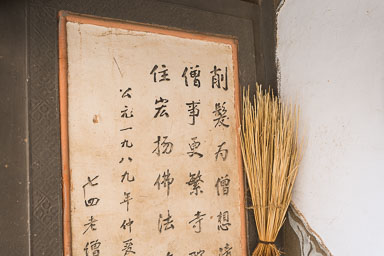 削髮为僧想
僧事更繁寺
住宏扬佛法
公元一九八九年仲夏
七四老僧